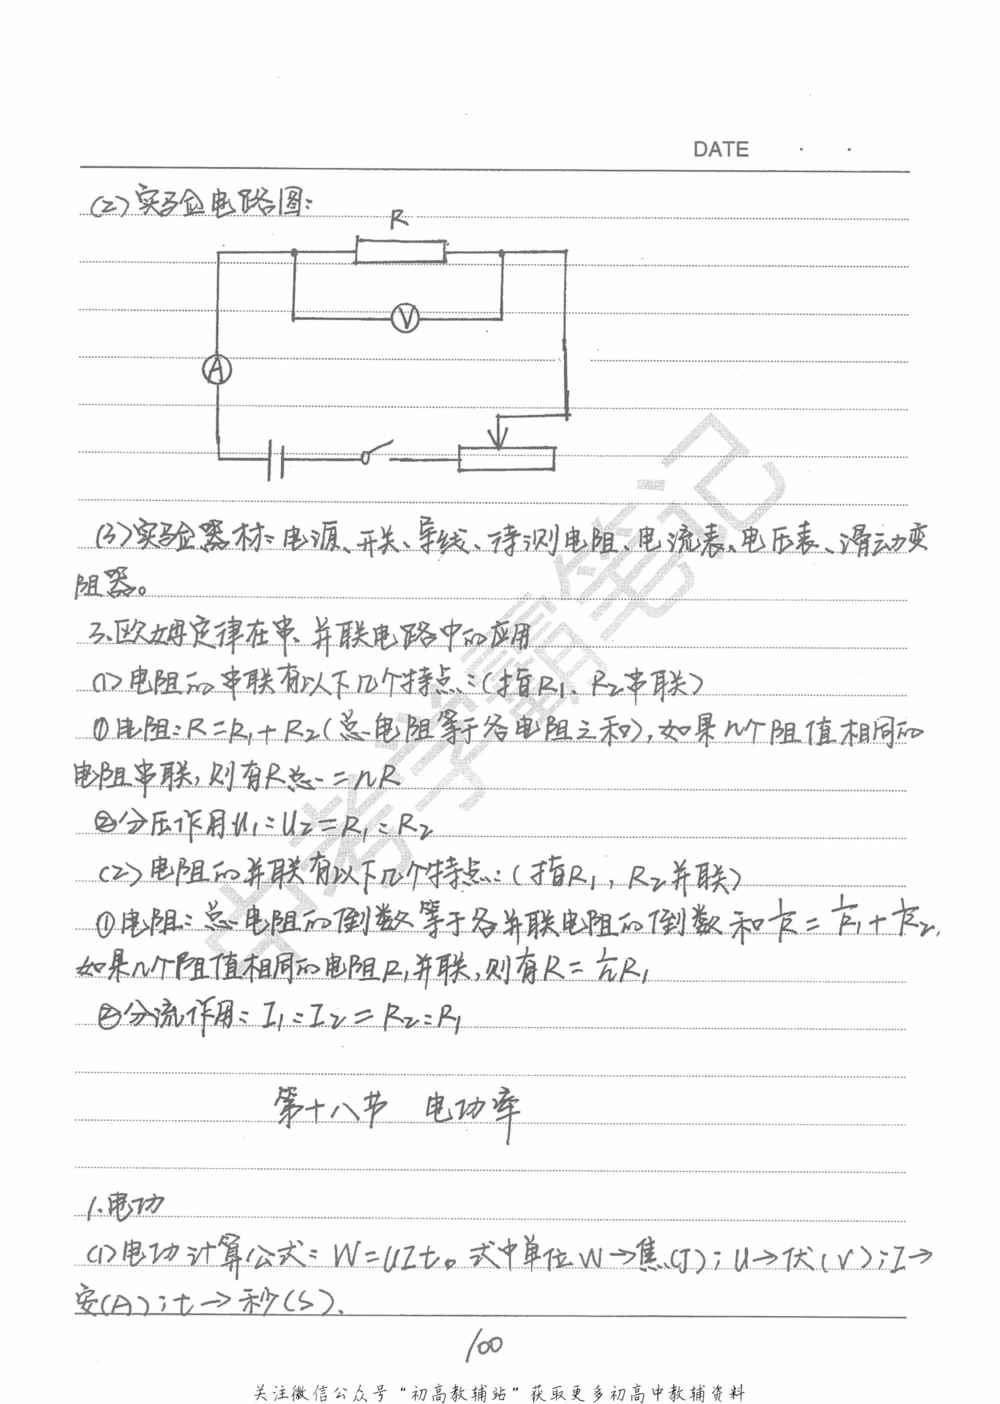 DATE · ·
(2)实验电路图:
R
V
A
(3)实验器材:电源、开关、导线、待测电阻、电流表、电压表、滑动变
阻器。
3.欧姆定律在串、并联电路中的应用
(1)电阻的串联有以下几个特点:(指R₁、R₂串联)
①电阻:R=R₁+R₂(总电阻等于各电阻之和),如果n个阻值相同的
电阻串联,则有R总=nR
②分压作用U₁:U₂=R₁:R₂
(2)电阻的并联有以下几个特点:(指R₁,R₂并联)
①电阻:总电阻的倒数等于各并联电阻的倒数和1/R=1/R₁+1/R₂,
如果n个阻值相同的电阻R₁并联,则有R=1/nR₁
②分流作用:I₁:I₂=R₂:R₁
第十八节 电功率
1.电功
(1)电功计算公式:W=UIt。式中单位W→焦(J);U→伏(V);I→
安(A);t→秒(S).
100
关注微信公众号“初高教辅站”获取更多初高中教辅资料
中考学霸笔记